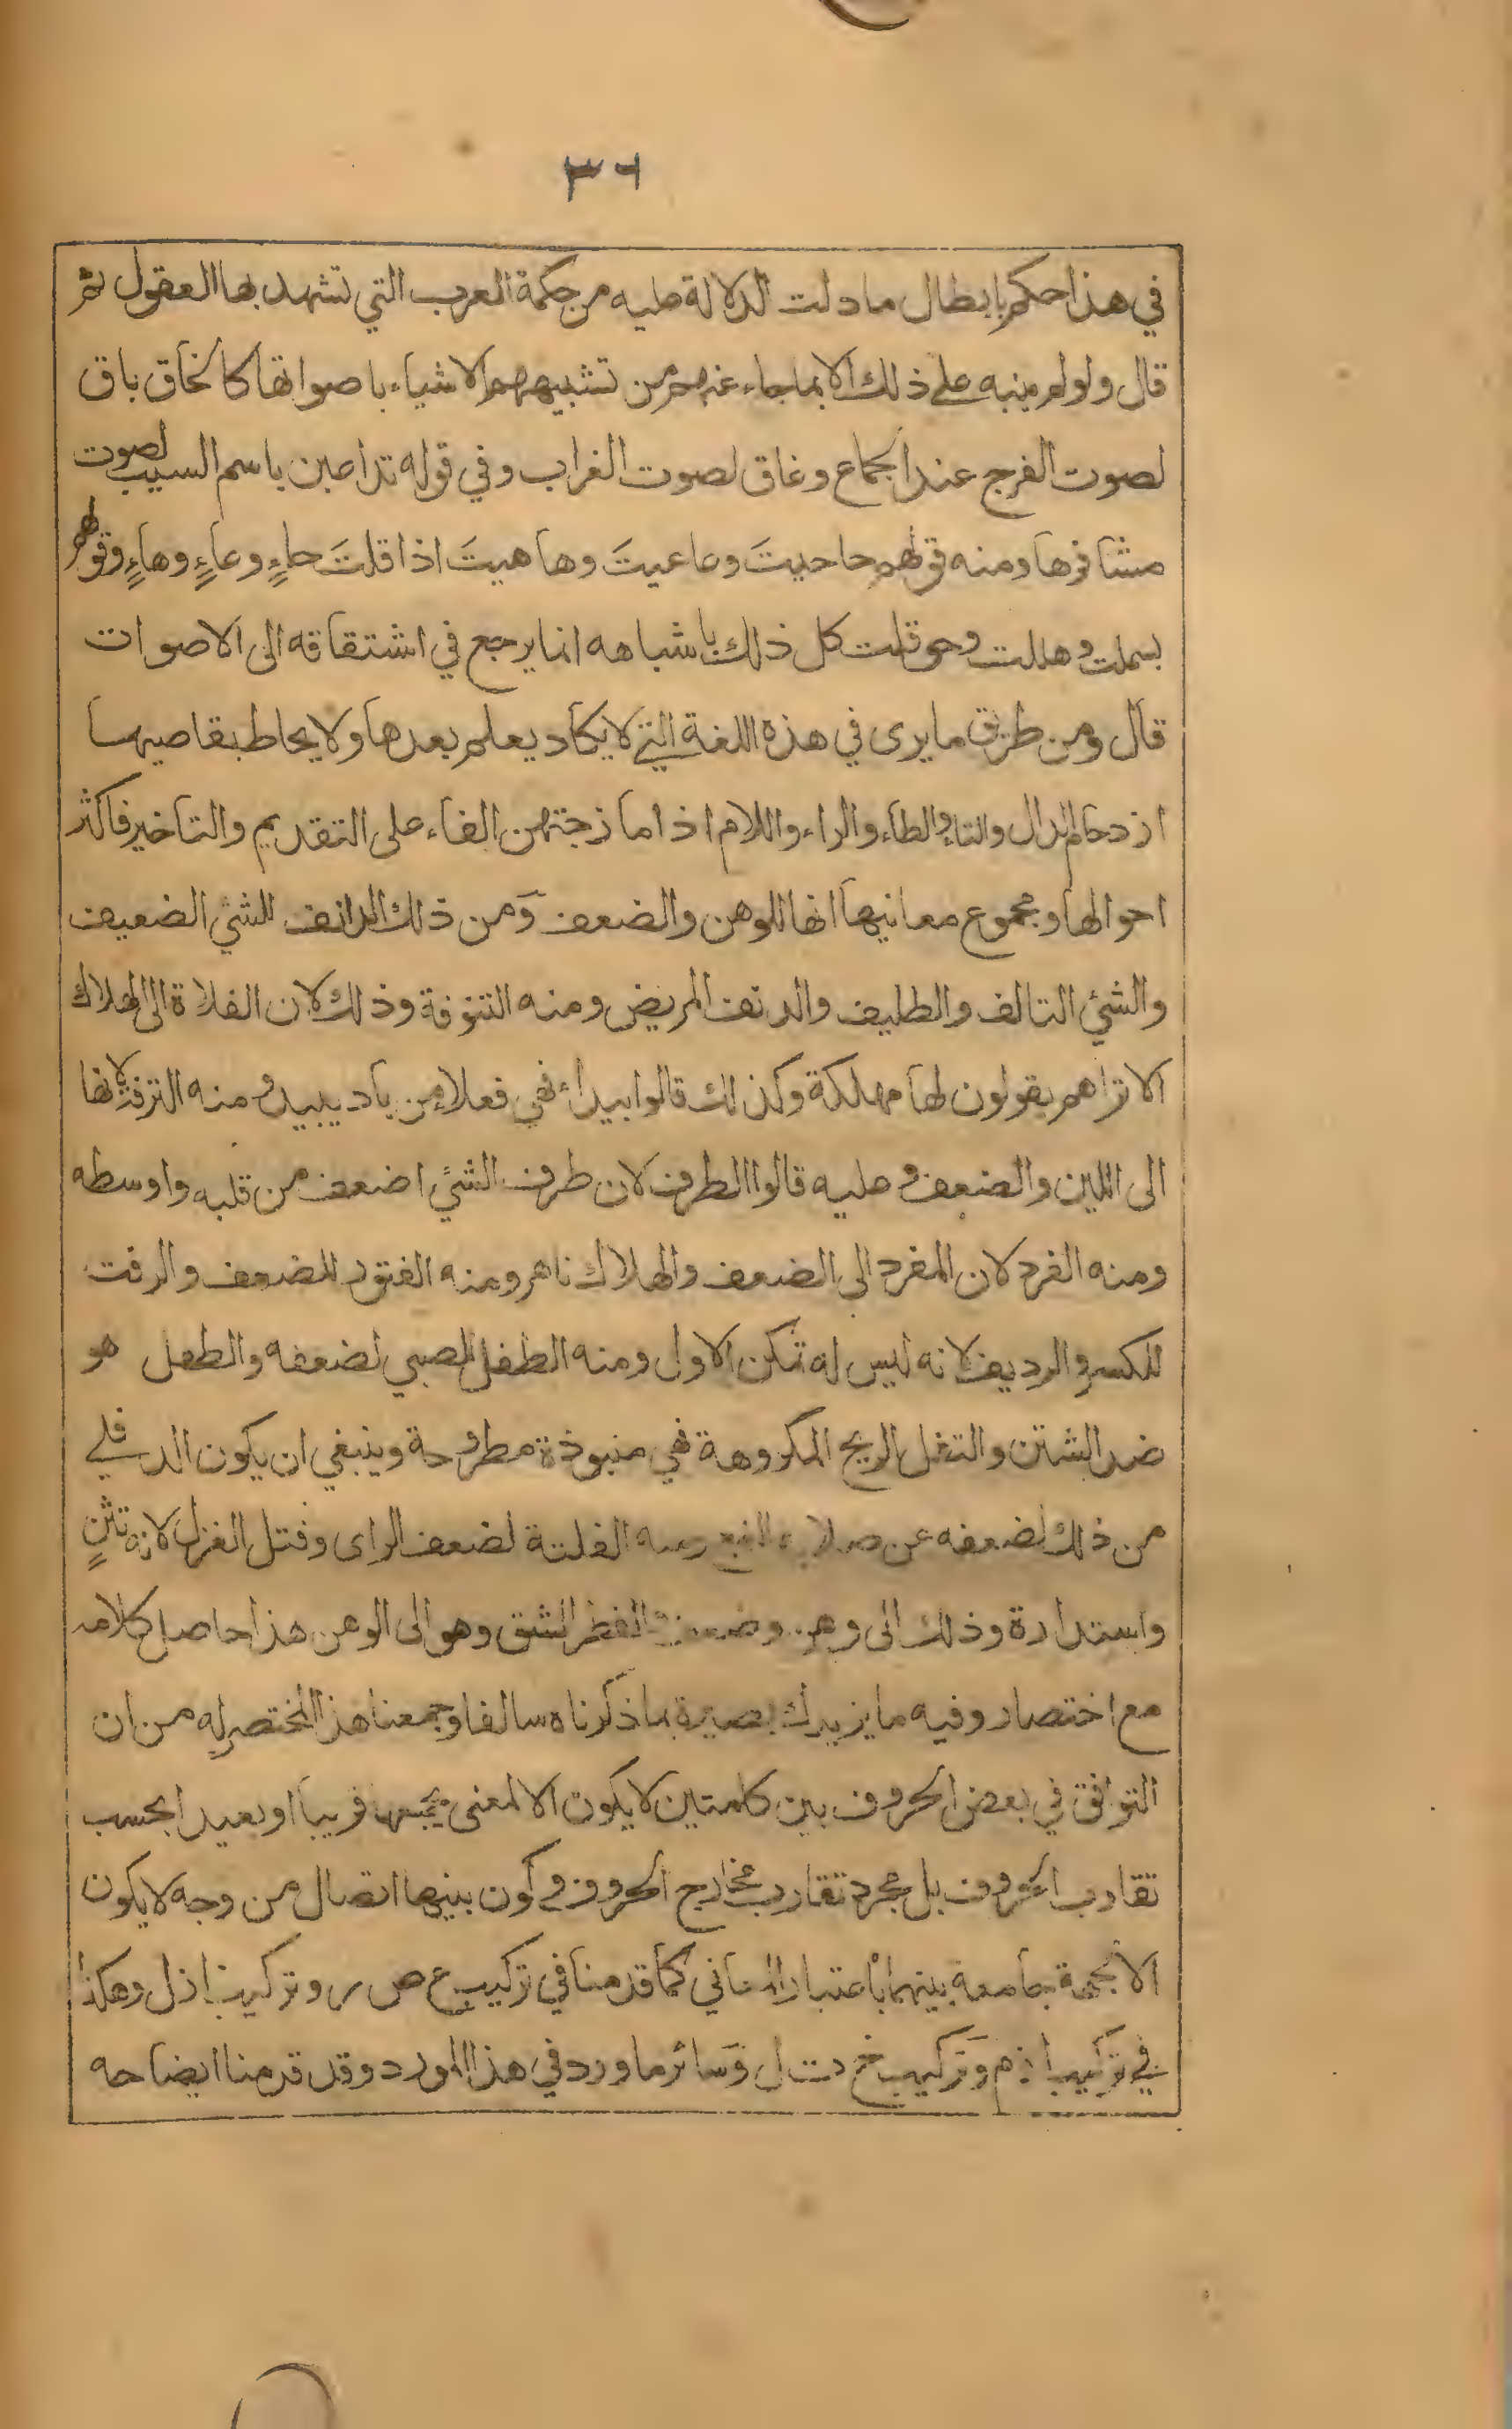 ٣٦
في هذا حكم بابطال ما دلت الدلالة عليه من حكمة العرب التي تشهد بها العقول ثم
قال ولو لم ينبه على ذلك الا بما جاء عنهم من تشبيههم الاشياء باصواتها كالخاق باق
لصوت الفرج عند الجماع وغاق لصوت الغراب وفي قوله تداعين باسم السيب لصوت
مشافرها ومنه قولهم حاحيتَ وعاعيتَ وهاهيتَ اذا قلتَ حاءٍ وعاءٍ وهاءٍ وقولهم
بسملت وهللت وحوقلت كل ذلك باشباهه انما يرجع في اشتقاقه الى الاصوات
قال ومن طريق ما يرى في هذه اللغة التي لا يكاد يعلم بعدها ولا يحاط بقاصيها
ازدحام الدال والتاء والطاء والراء واللام اذا مازجتهن الفاء على التقديم والتاخير فاكثر
احوالها ومجموع معانيها انها للوهن والضعف ومن ذلك الدانف للشئ الضعيف
والشئ التالف والطليف والدنف المريض ومنه التنوفة وذلك لان الفلاة الى الهلاك
الا تراهم يقولون لها مهلكة وكذلك قالوا بيداء فهي فعلاء من باد يبيد ومنه الترفة لانها
الى اللين والضعف وعليه قالوا الطرف لان طرف الشئ اضعف من قلبه واوسطه
ومنه الفرد لان المفرد الى الضعف والهلاك ناهر ومنه الفتور للضعف والرفت
للكسر والرديف لانه ليس له تمكن الاول ومنه الطفل للصبي لضعفه والطفل هو
ضد الشتن والتفل الريح المكروهة فهي منبوذة مطروحة وينبغي ان يكون الدفلى
من ذلك لضعفه عن ومنه الفلتة لضعف الراى وفتل الغزل لانه تثنٍ
واستدارة وذلك الى وهن وضعف والفطر الشق وهو الى الوهن هذا حاصل كلامه
مع اختصار وفيه ما يزيدك بصيرة بما ذكرناه سالفا وجمعنا هذا المختصر له من ان
التوافق في بعض الحروف بين كلمتين لا يكون الا لمعنى يجمعها قريبا او بعيدا بحسب
تقارب الحروف بل مجرد تقارب مخارج الحروف وكون بينها اتصال من وجه لا يكون
الا لجهة جامعة بينهما باعتبار المعاني كما قدمنا في تركيب ع ص ر وتركيب ا ز ل وهكذا
في تركيب وتركيب خ ت ل وسائر ما ورد في هذا المورد وقد قدمنا ايضاحه